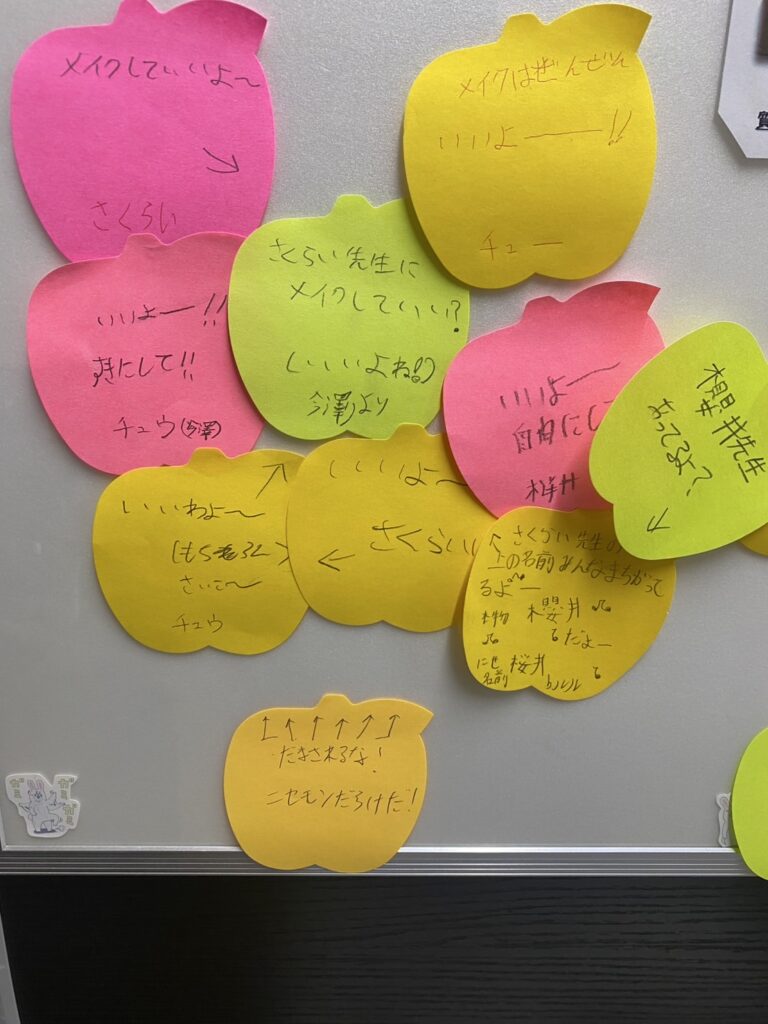 メイクしていいよ〜
さくらい
メイクはぜんぜん
いいよー!!
チュー
いいよー!!
好きにして!!
チュウ(今澤)
さくらい先生に
メイクしていい?
(いいよね!!)
今澤より
いいよ〜
自由にし
桜井
櫻井先生
あってるよ?
いいわよ〜
さいこ〜
チュウ
いいよ〜
さくらい
さくらい先生の
上の名前みんなまちがって
るよー
本物 櫻井
だよー
にせ 桜井
名前
だまされるな!
ニセモンだらけだ!